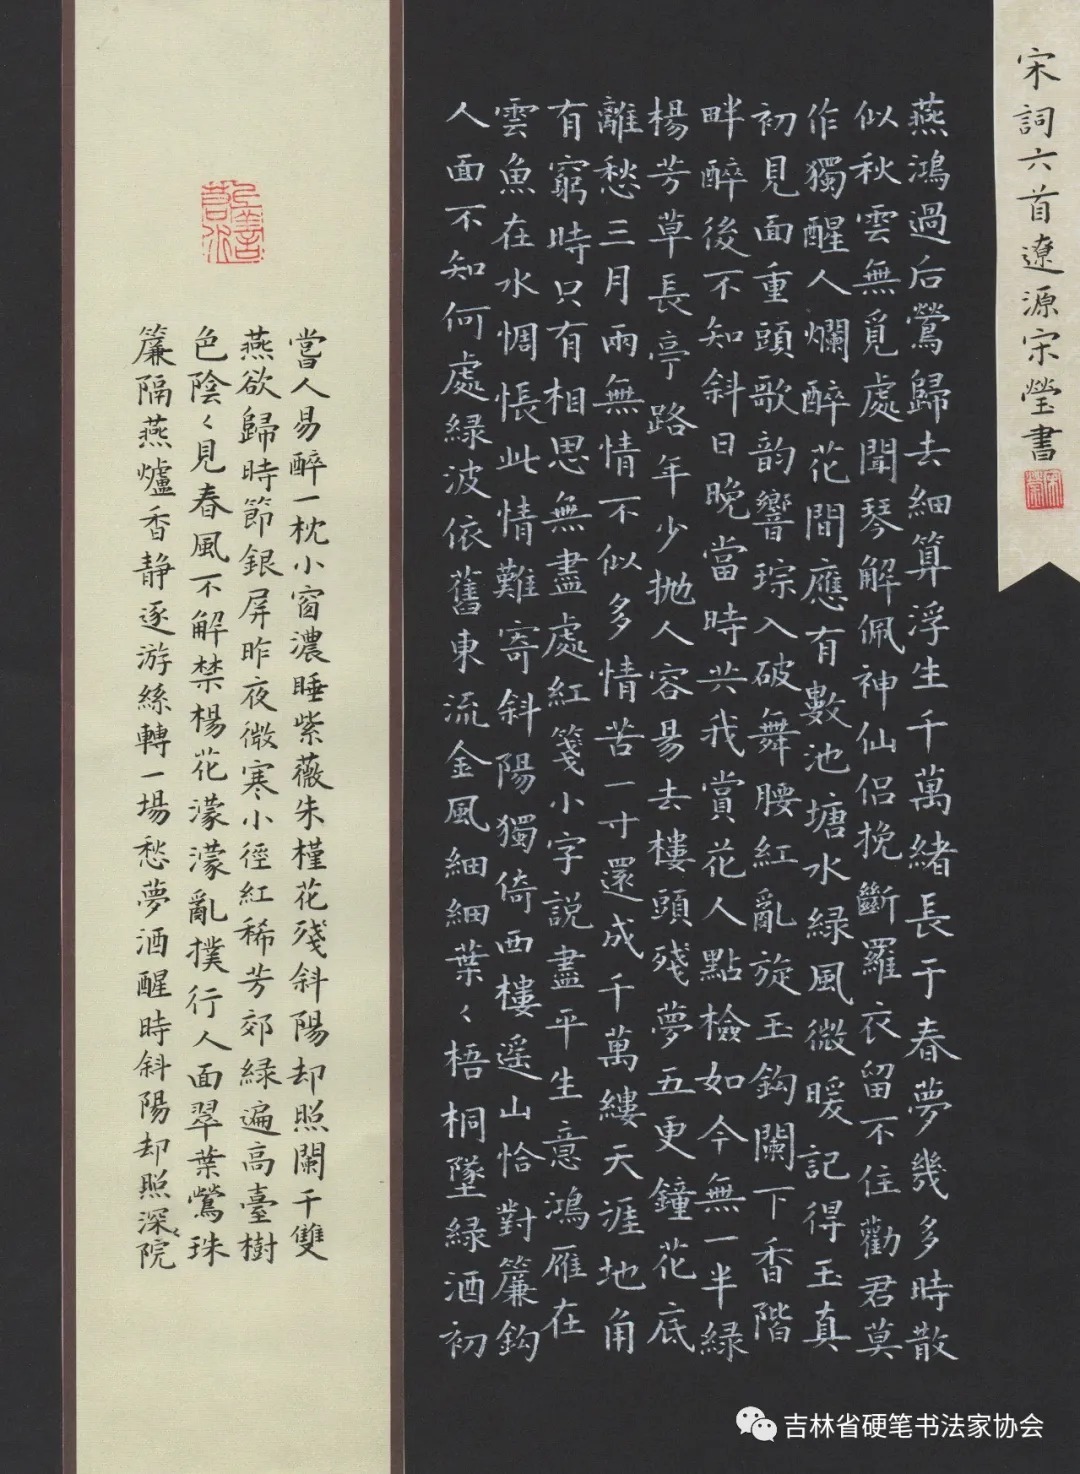 宋詞六首遼源宋瑩書
燕鴻過后鶯歸去細算浮生千萬緒長于春夢幾多時散
似秋雲無覓處聞琴解佩神仙侣挽斷羅衣留不住勸君莫
作獨醒人爛醉花間應有數池塘水緑風微暖記得玉真
初見面重頭歌韵響琮入破舞腰紅亂旋玉鈎闌下香階
畔醉後不知斜日晚當時共我賞花人點檢如今無一半緑
楊芳草長亭路年少抛人容易去樓頭殘夢五更鐘花底
離愁三月雨無情不似多情苦一寸還成千萬縷天涯地角
有窮時只有相思無盡處紅箋小字説盡平生意鴻雁在
雲魚在水惆悵此情難寄斜陽獨倚西樓遥山恰對簾鈎
人面不知何處緑波依舊東流金風細細葉〻梧桐墜緑酒初
嘗人易醉一枕小窗濃睡紫薇朱槿花殘斜陽却照闌干雙
燕欲歸時節銀屏昨夜微寒小徑紅稀芳郊緑遍高臺樹
色陰〻見春風不解禁楊花濛濛亂撲行人面翠葉鶯珠
簾隔燕爐香静逐游絲轉一場愁夢酒醒時斜陽却照深〻院
吉林省硬笔书法家协会